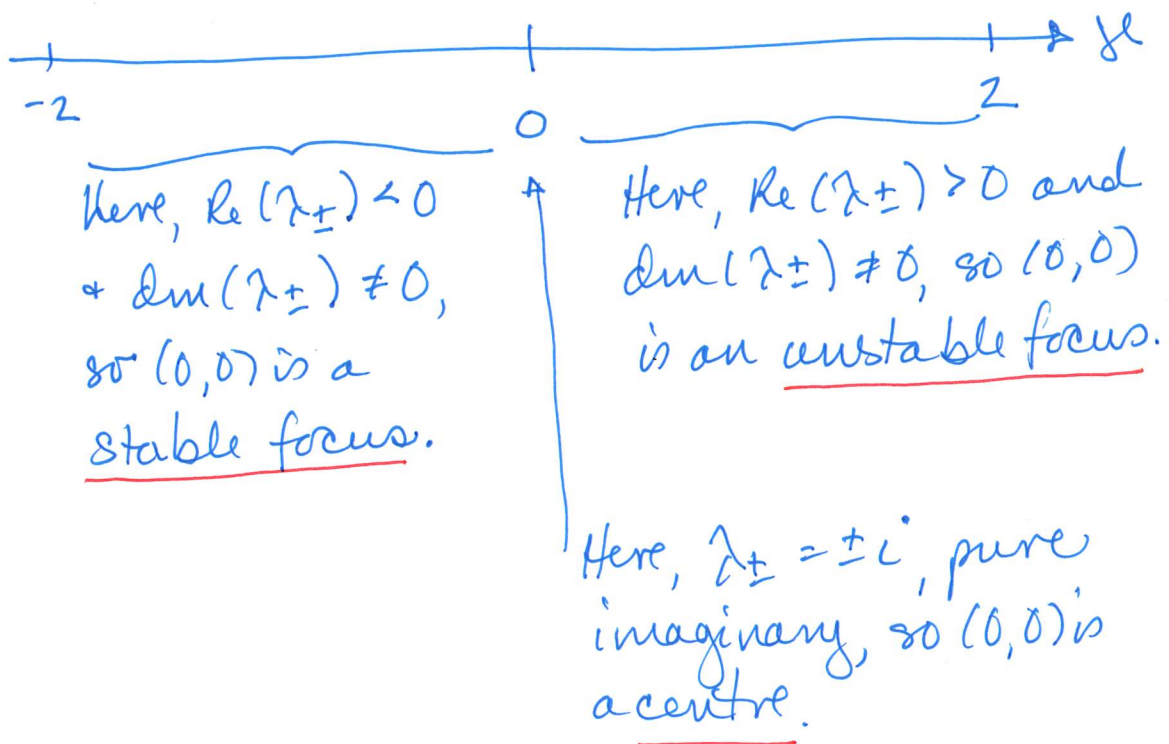 μ
-2 0 2
Here, Re(λ±) < 0
& Im(λ±) ≠ 0,
so (0,0) is a
stable focus.
Here, Re(λ±) > 0 and
Im(λ±) ≠ 0, so (0,0)
is an unstable focus.
Here, λ± = ±i, pure
imaginary, so (0,0) is
a centre.